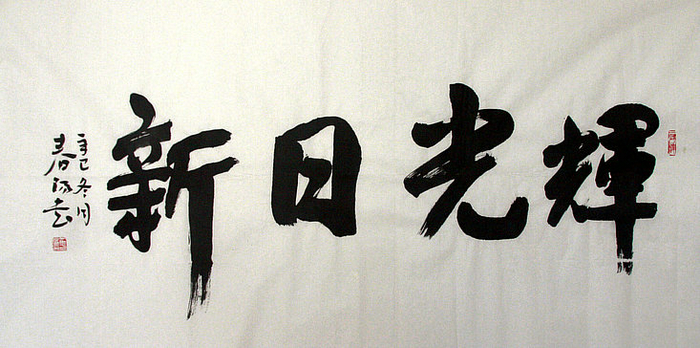 輝光日新
辛巳冬月
春